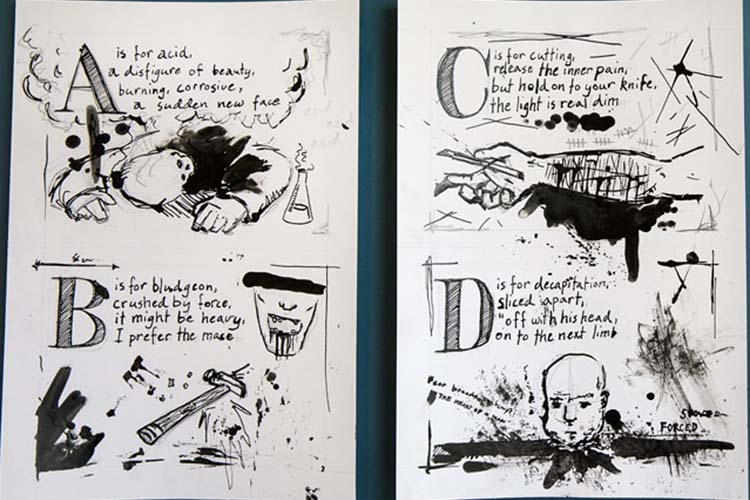 A is for acid,
a disfigure of beauty,
burning, corrosive,
a sudden new face
acid
acid
acid
B is for bludgeon,
crushed by force,
it might be heavy,
I prefer the mace
C is for cutting,
release the inner pain,
but hold on to your knife,
the light is real dim
D is for decapitation,
sliced apart,
"off with his head,
on to the next limb
THE HEART OF A
FORCED